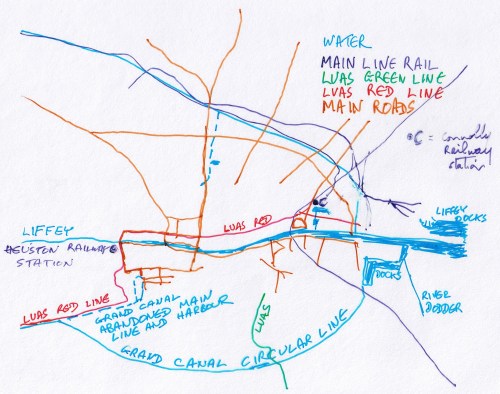 WATER
MAIN LINE RAIL
LUAS GREEN LINE
LUAS RED LINE
MAIN ROADS
C = Connolly
Railway
station
C
LIFFEY
DOCKS
LUAS RED
LIFFEY
HEUSTON RAILWAY
STATION
DOCKS
RIVER
DODDER
LUAS RED LINE
GRAND CANAL MAIN
ABANDONED MAIN
LINE AND HARBOUR
LUAS
GRAND CANAL CIRCULAR LINE